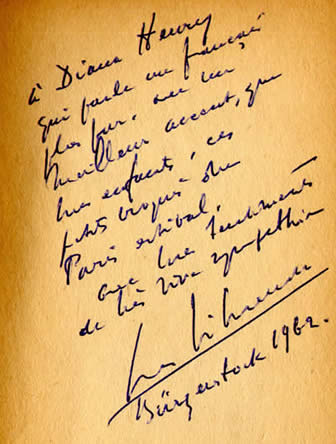 à Diana Henry
qui parle un français
plus pur, avec un
meilleur accent, que
mes enfants, ces
petits croqués du
Paris estival,
avec mes sentiments
de très vive sympathie
Bürgenstock 1962.